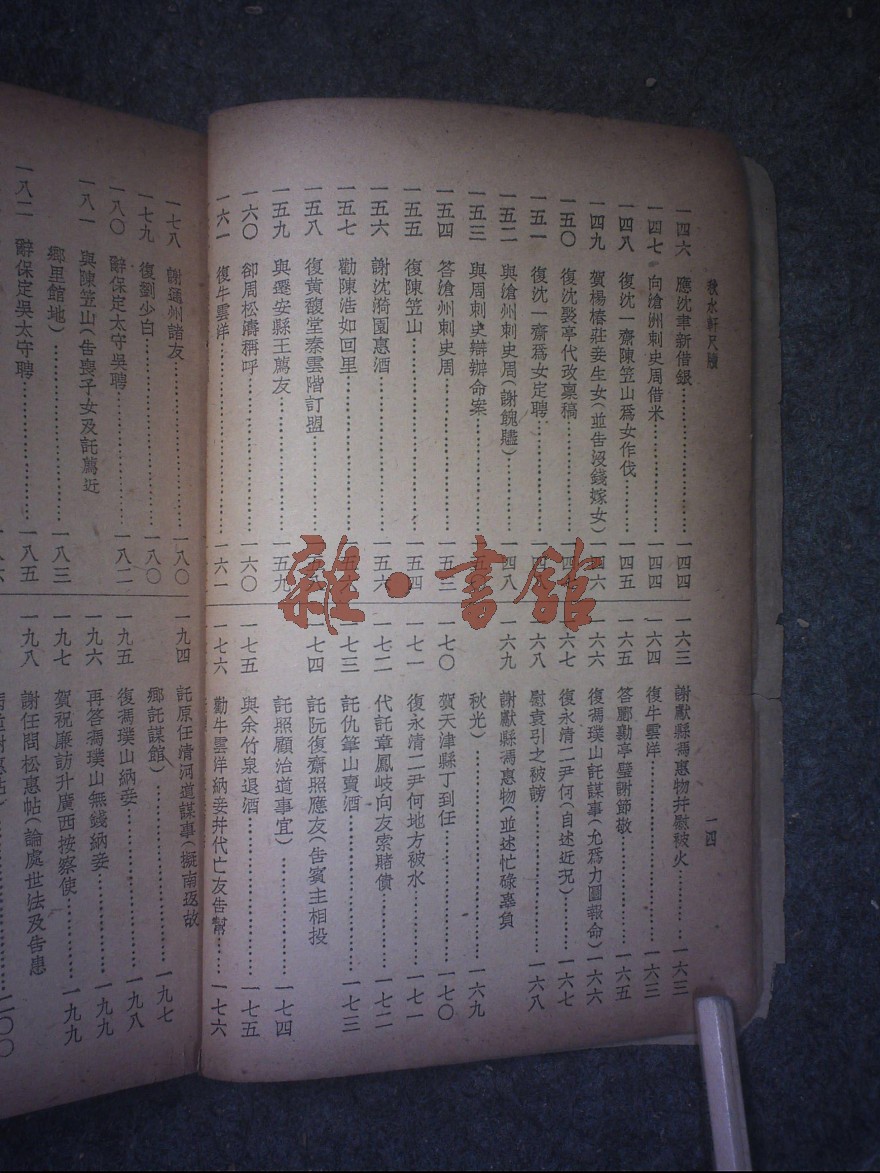 秋水軒尺牘
一四
一四六 應沈聿新借銀 一四四
一四七 向滄洲刺史周借米 一四四
一四八 復沈一齋陳笠山爲女作伐 一四五
一四九 賀楊椿莊妾生女(並告沒錢嫁女) 一四六
一五〇 復沈裂亭代改稟稿 一四七
一五一 復沈一齋爲女定聘 一四八
一五二 與滄州刺史周(謝餽贐) 一四八
一五三 與周刺史辯辦命案
一五四 答滄州刺史周 一五三
一五五 復陳笠山 一五四
一五六 謝沈漪園惠酒 一五六
一五七 勸陳浩如回里
一五八 復黃馥堂秦雲階訂盟
一五九 與遷安縣王薦友 一五九
一六〇 卻周松濤稱呼 一六〇
一六一 復牛雲洋 一六一
一六三 謝獻縣馮惠物并慰被火 一六三
一六四 復牛雲洋 一六三
一六五 答酈勷亭璧謝節敬 一六五
一六六 復馮璞山託謀事(允爲力圖報命) 一六六
一六七 復永清二尹何(自述近況) 一六七
一六八 慰袁引之被謗 一六八
一六九 謝獻縣馮惠物(並述忙碌辜負
秋光) 一六九
一七〇 賀天津縣丁到任 一七〇
一七一 復永清二尹何地方被水 一七一
一七二 代託章鳳岐向友索賭債 一七二
一七三 託仇筆山賣酒 一七三
一七四 託阮復齋照應友(告賓主相投
託照顧治道事宜) 一七四
一七五 與余竹泉退酒 一七五
一七六 勸牛雲洋納妾并代亡友告幫 一七六
一七八 謝通州諸友 一八〇
一七九 復劉少白 一八〇
一八〇 辭保定太守吳聘 一八二
一八一 與陳笠山(告喪子女及託薦近
鄉里館地) 一八三
一八二 辭保定吳太守聘 一八五
一九四 託原任清河道謀事(擬南返故
鄉託謀館) 一九七
一九五 復馮璞山納妾 一九八
一九六 再答馮璞山無錢納妾 一九九
一九七 賀祝廉訪升廣西按察使 一九九
一九八 謝任問松惠帖(論處世法及告患
二〇〇
雜·書館